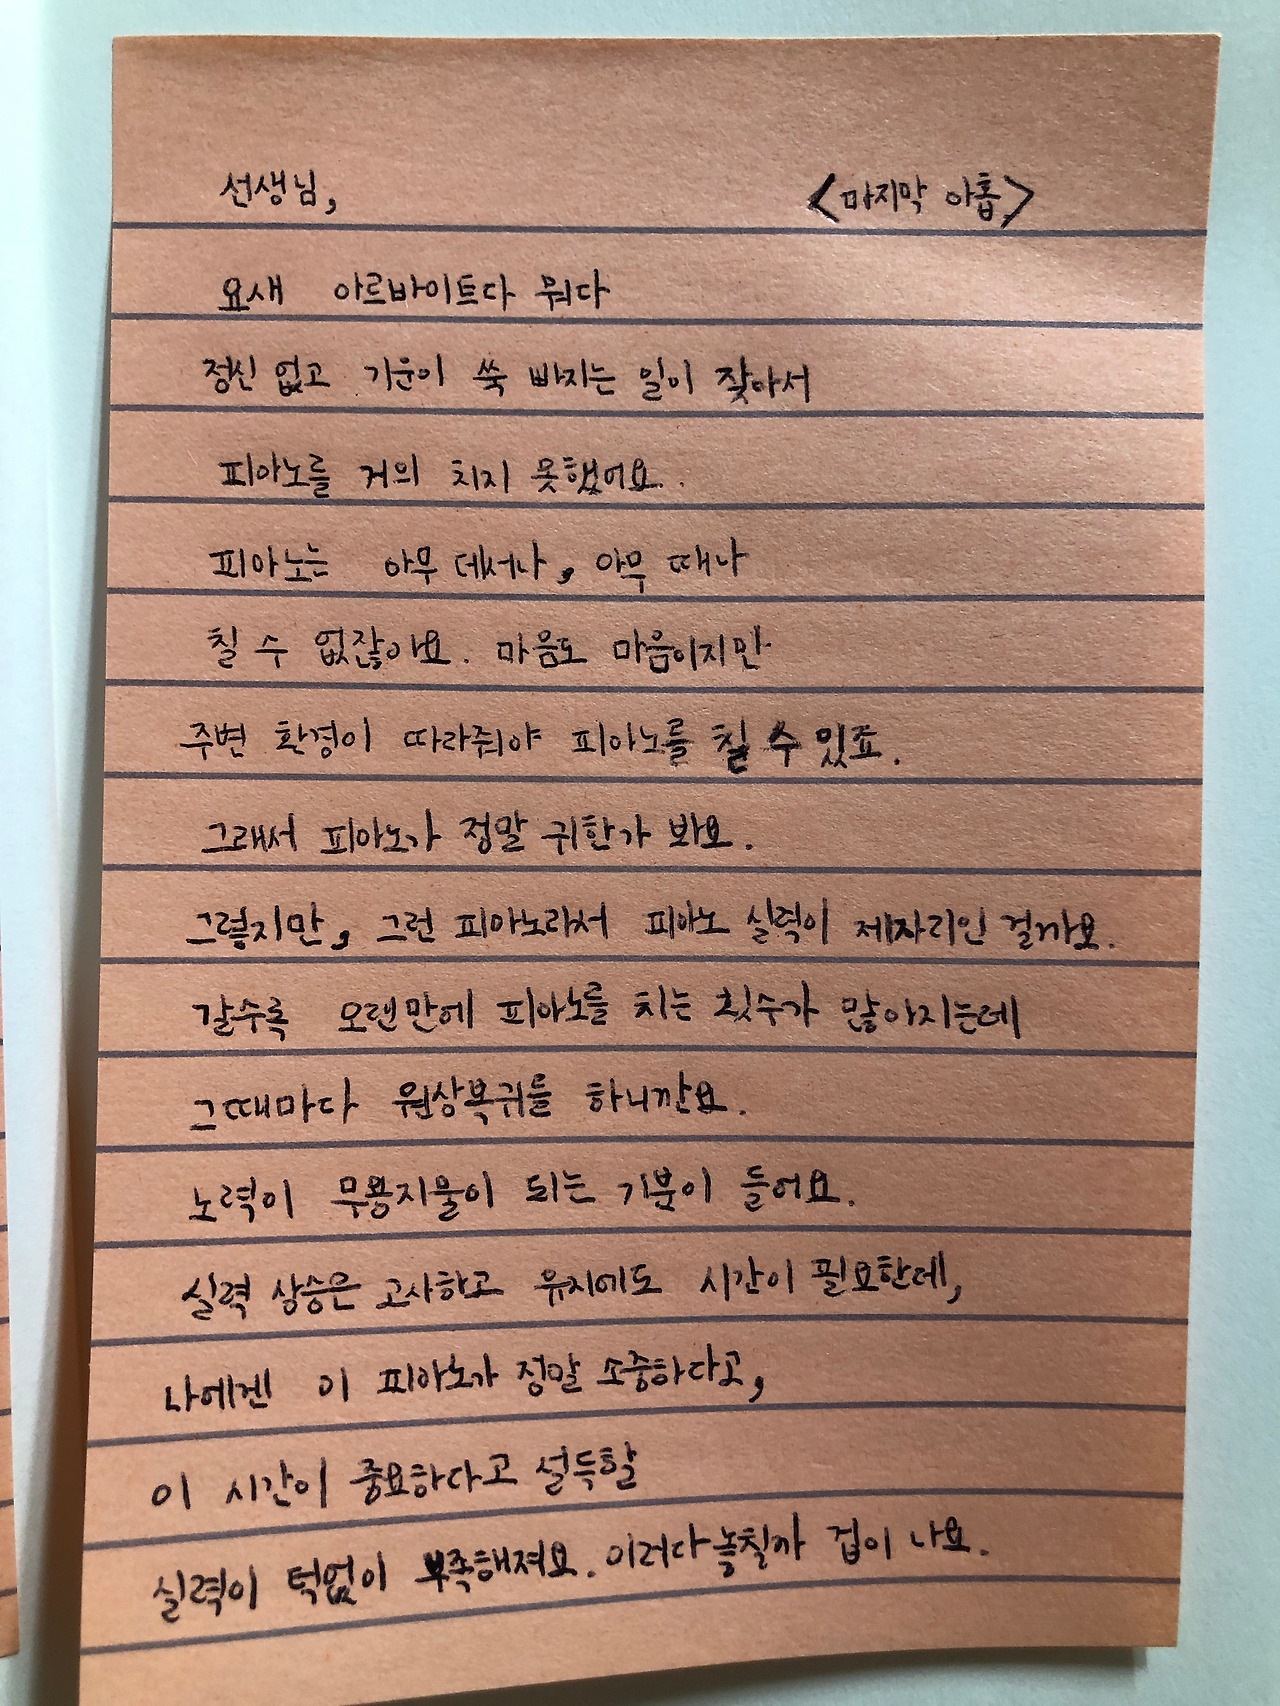 선생님, <마지막 아홉>
요새 아르바이트다 뭐다
정신 없고 기운이 쑥 빠지는 일이 잦아서
피아노를 거의 치지 못했어요.
피아노는 아무 데서나, 아무 때나
칠 수 없잖아요. 마음도 마음이지만
주변 환경이 따라줘야 피아노를 칠 수 있죠.
그래서 피아노가 정말 귀한가 봐요.
그렇지만, 그런 피아노라서 피아노 실력이 제자리인 걸까요.
갈수록 오랜만에 피아노를 치는 횟수가 많아지는데
그때마다 원상복귀를 하니깐요.
노력이 무용지물이 되는 기분이 들어요.
실력 상승은 고사하고 유지에도 시간이 필요한데,
나에겐 이 피아노가 정말 소중하다고,
이 시간이 중요하다고 설득할
실력이 턱없이 부족해져요. 이러다 놓칠까 겁이 나요.